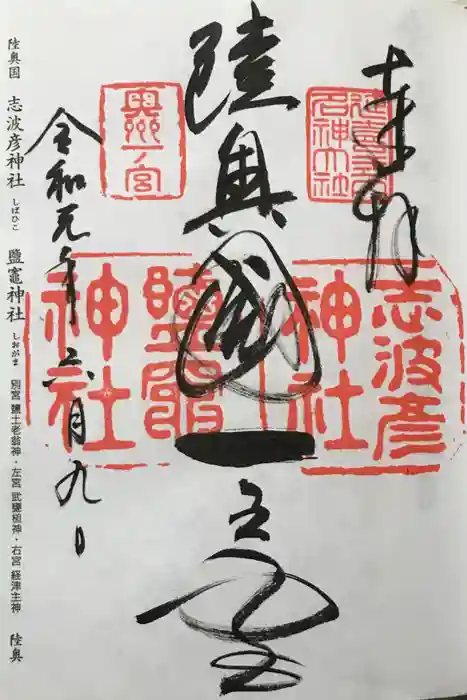 奉拝
延喜式内
名神大社
陸奥國一之宮
志波彦
神社
鹽竈
神社
一宮
令和元年六月九日
陸奥国 志波彦神社 しばひこ 鹽竈神社 しおがま 別宮 鹽土老翁神・左宮 武甕槌神・右宮 経津主神 陸奥